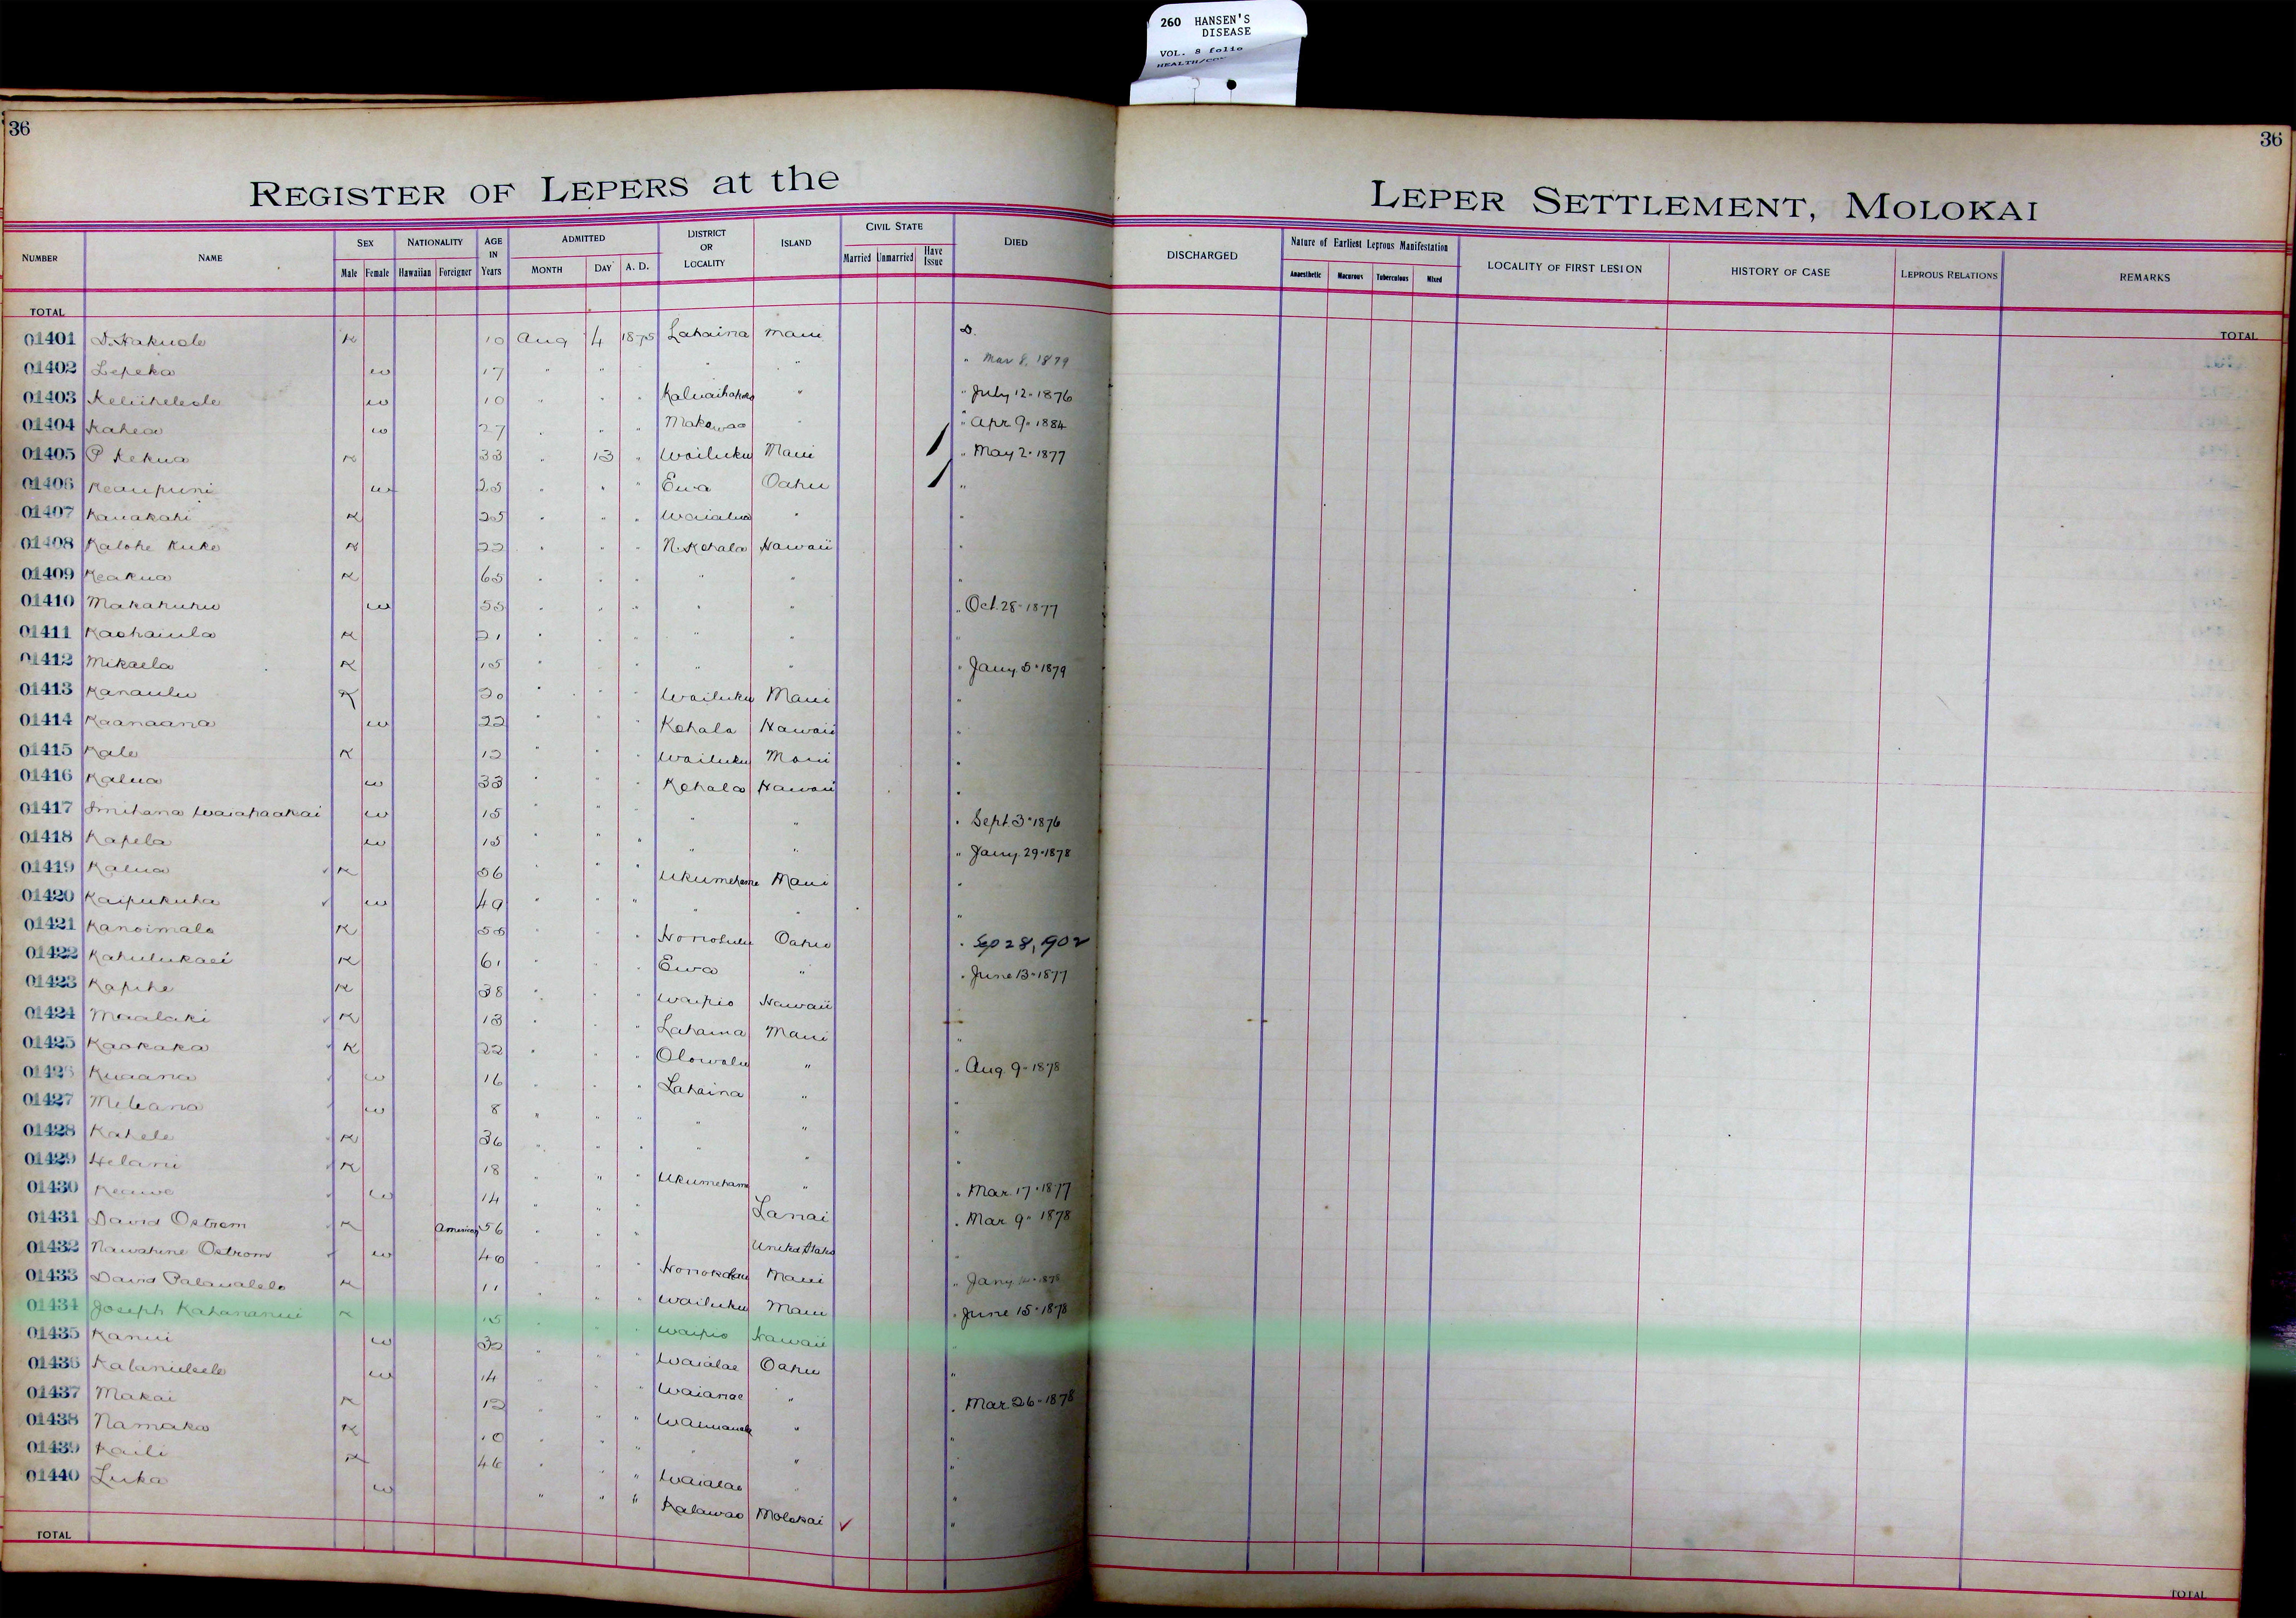 260 HANSEN'S
DISEASE
VOL. 8 folio
36
36
REGISTER OF LEPERS at the
LEPER SETTLEMENT, MOLOKAI
NUMBER NAME SEX Male Female NATIONALITY Hawaiian Foreigner AGE IN Years ADMITTED MONTH DAY A. D. DISTRICT OR LOCALITY ISLAND CIVIL STATE Married Unmarried Have Issue DIED
DISCHARGED Nature of Earliest Leprous Manifestation Anaesthetic Macurous Tuberculous Mixed LOCALITY OF FIRST LESION HISTORY OF CASE LEPROUS RELATIONS REMARKS
TOTAL
TOTAL
01401 D. Hakuole K 10 Aug 4 1875 Lahaina Maui D.
01402 Lepeka w 17 " " " " " Mar 8, 1879
01403 w 10 " " " " " July 12-1876
01404 Kahea w 27 " " " Makawao " " Apr 9-1884
01405 P Kekua K 33 " 13 " Wailuku Maui " May 2-1877
01406 Keaupuni w 25 " " " Ewa Oahu "
01407 Kauakahi K 25 " " " Waialua " "
01408 Kalohe Kuke K 22 " " " N. Kohala Hawaii "
01409 Keakua K 65 " " " " " "
01410 Makahuhu w 55 " " " " " " Oct. 28-1877
01411 Kaohaiula K 21 " " " " " "
01412 Mikaela K 15 " " " " " " Jany 5-1879
01413 Kanaulu K 20 " " " Wailuku Maui "
01414 Kaanaana w 22 " " " Kohala Hawaii "
01415 Kale K 12 " " " Wailuku Maui "
01416 Kalua w 33 " " " Kohala Hawaii "
01417 w 15 " " " " " " Sept. 3-1876
01418 Kapela w 15 " " " " " " Jany. 29-1878
01419 Kalua K 56 " " " Ukumehame Maui "
01420 Kaipukuha w 49 " " " " " "
01421 Kanoimalo K 55 " " " Honolulu Oahu " Sep 28, 1902
01422 Kahulukaei K 61 " " " Ewa " " June 13-1877
01423 Kapihe K 38 " " " Waipio Hawaii
01424 Maalaki K 13 " " " Lahaina Maui "
01425 Kaokaka K 22 " " " Olowalu " " Aug. 9-1878
01426 Kuaana w 16 " " " Lahaina " "
01427 Meleana w 8 " " " " " "
01428 Kahele K 36 " " " " " "
01429 Helani K 18 " " " Ukumehame " " Mar. 17-1877
01430 Keawe w 14 " " " Lanai " Mar. 9-1878
01431 David Ostrom K American 56 " " " United States "
01432 Nawahine Ostrom w 40 " " " Honokohau Maui " Jany 1878
01433 David Palaualelo K 11 " " " Wailuku Maui " June 15-1878
01434 Joseph Kahananui K 15 " " " Waipio Hawaii "
01435 Kanui w 32 " " " Waialae Oahu "
01436 w 14 " " " Waianae " " Mar. 26-1878
01437 Makai K 12 " " " " "
01438 Namaka K 10 " " " " " "
01439 Kaili K 46 " " " Waialae " "
01440 Luka w " " " Kalawao Molokai ✓ "
TOTAL
TOTAL